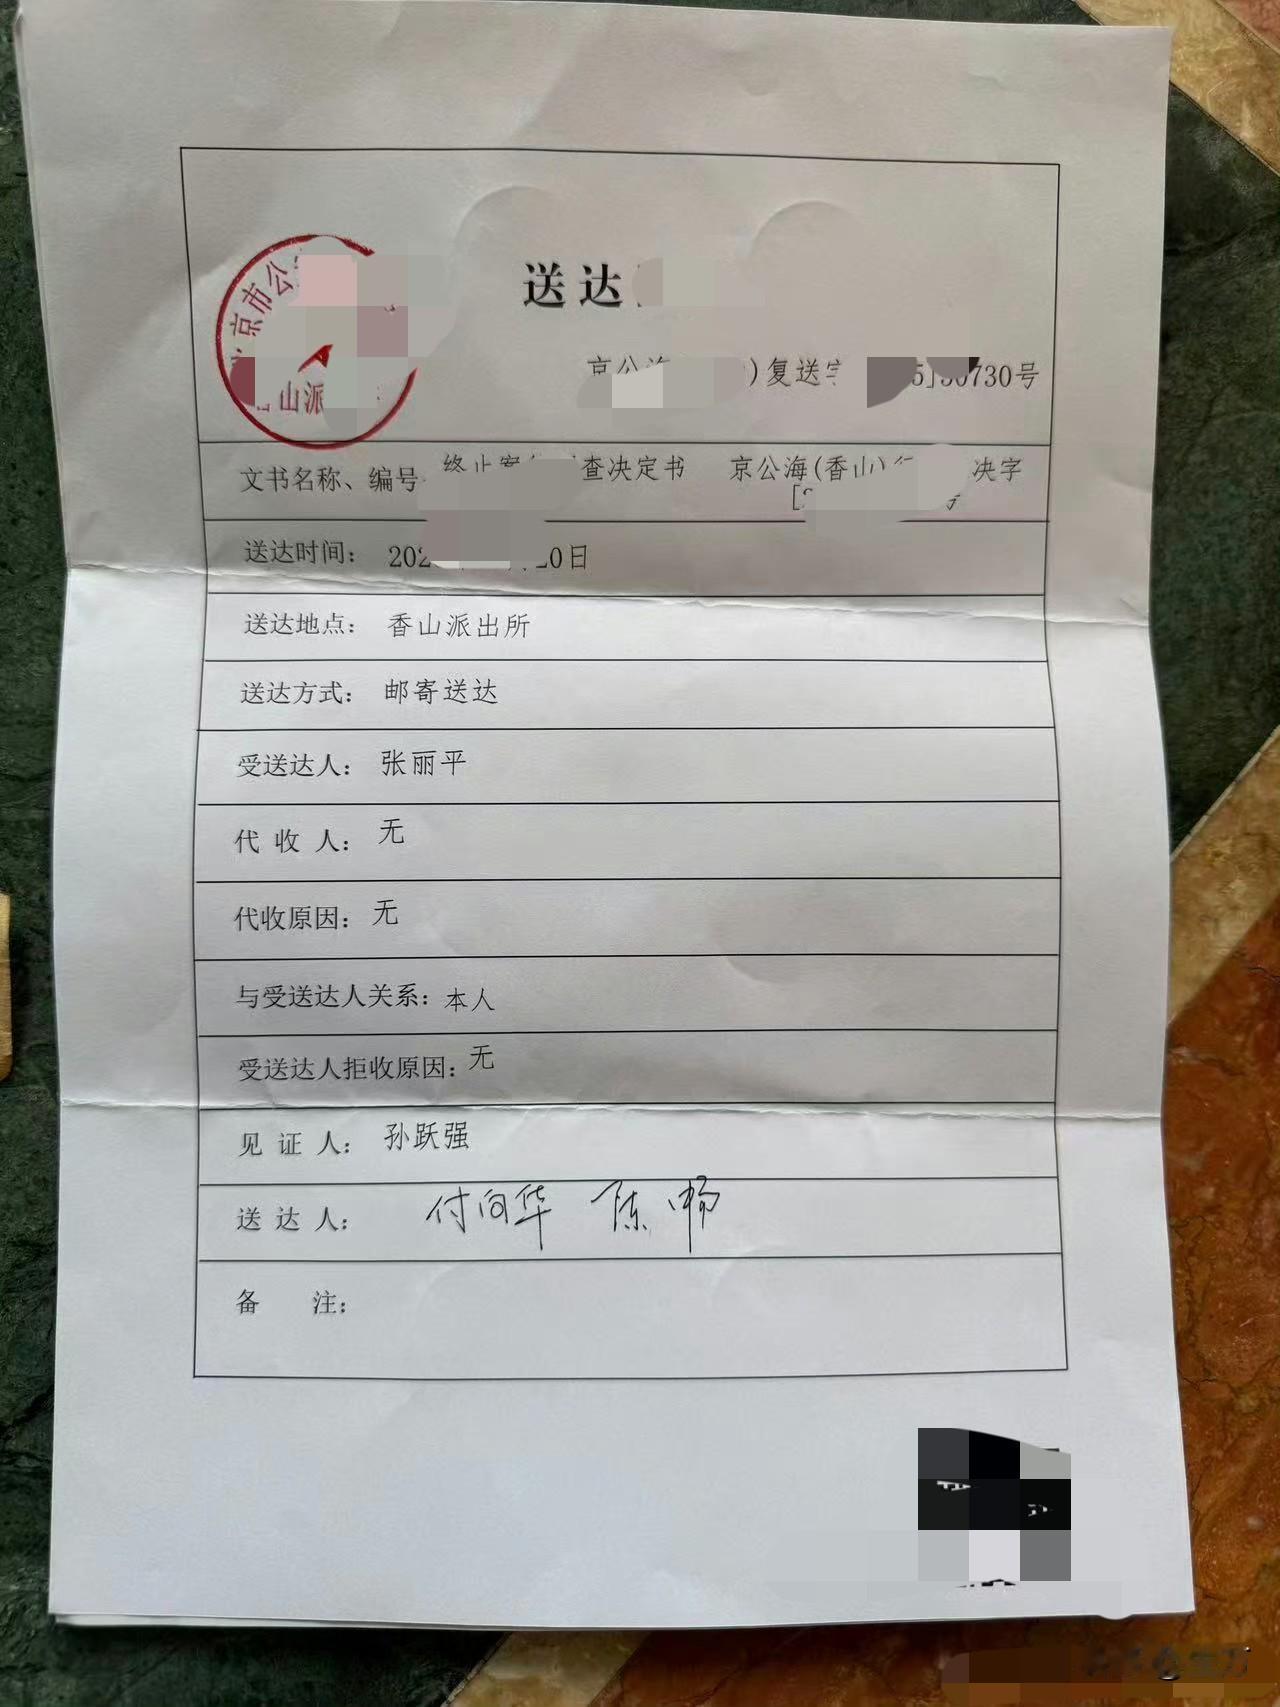 京市公
山派
送达
京公海
)复送字
5]30730号
文书名称、编号
查决定书 京公海(香山)
决字
送达时间: 202 20日
送达地点: 香山派出所
送达方式: 邮寄送达
受送达人: 张丽平
代收人: 无
代收原因: 无
与受送达人关系: 本人
受送达人拒收原因: 无
见证人: 孙跃强
送达人: 付向华 陈畅
备注: